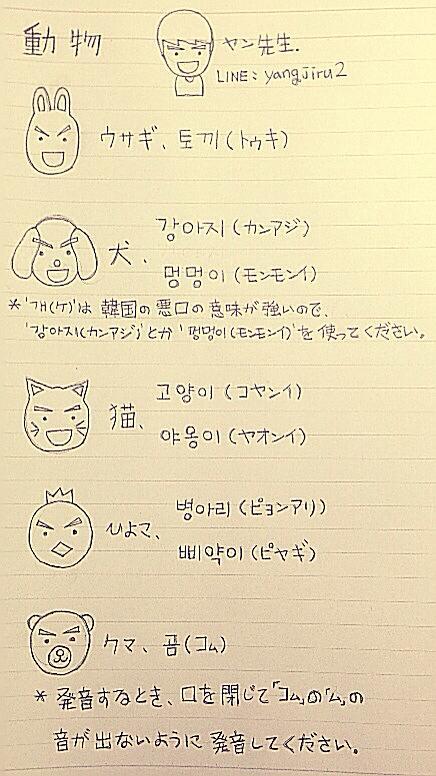 動物
ヤン先生.
LINE: yangjiru2
ウサギ、토끼(トゥキ)
犬、
강아지(カンアジ)
멍멍이(モンモンイ)
*'개(ケ)'は 韓国の悪口の意味が強いので、
'강아지(カンアジ)'とか'멍멍이(モンモンイ)'を使ってください。
猫、
고양이(コヤンイ)
야옹이(ヤオンイ)
ひよこ、
병아리(ピョンアリ)
삐약이(ピヤギ)
クマ、곰(コム)
* 発音するとき、口を閉じて「コム」の「ム」の
音が出ないように 発音してください。